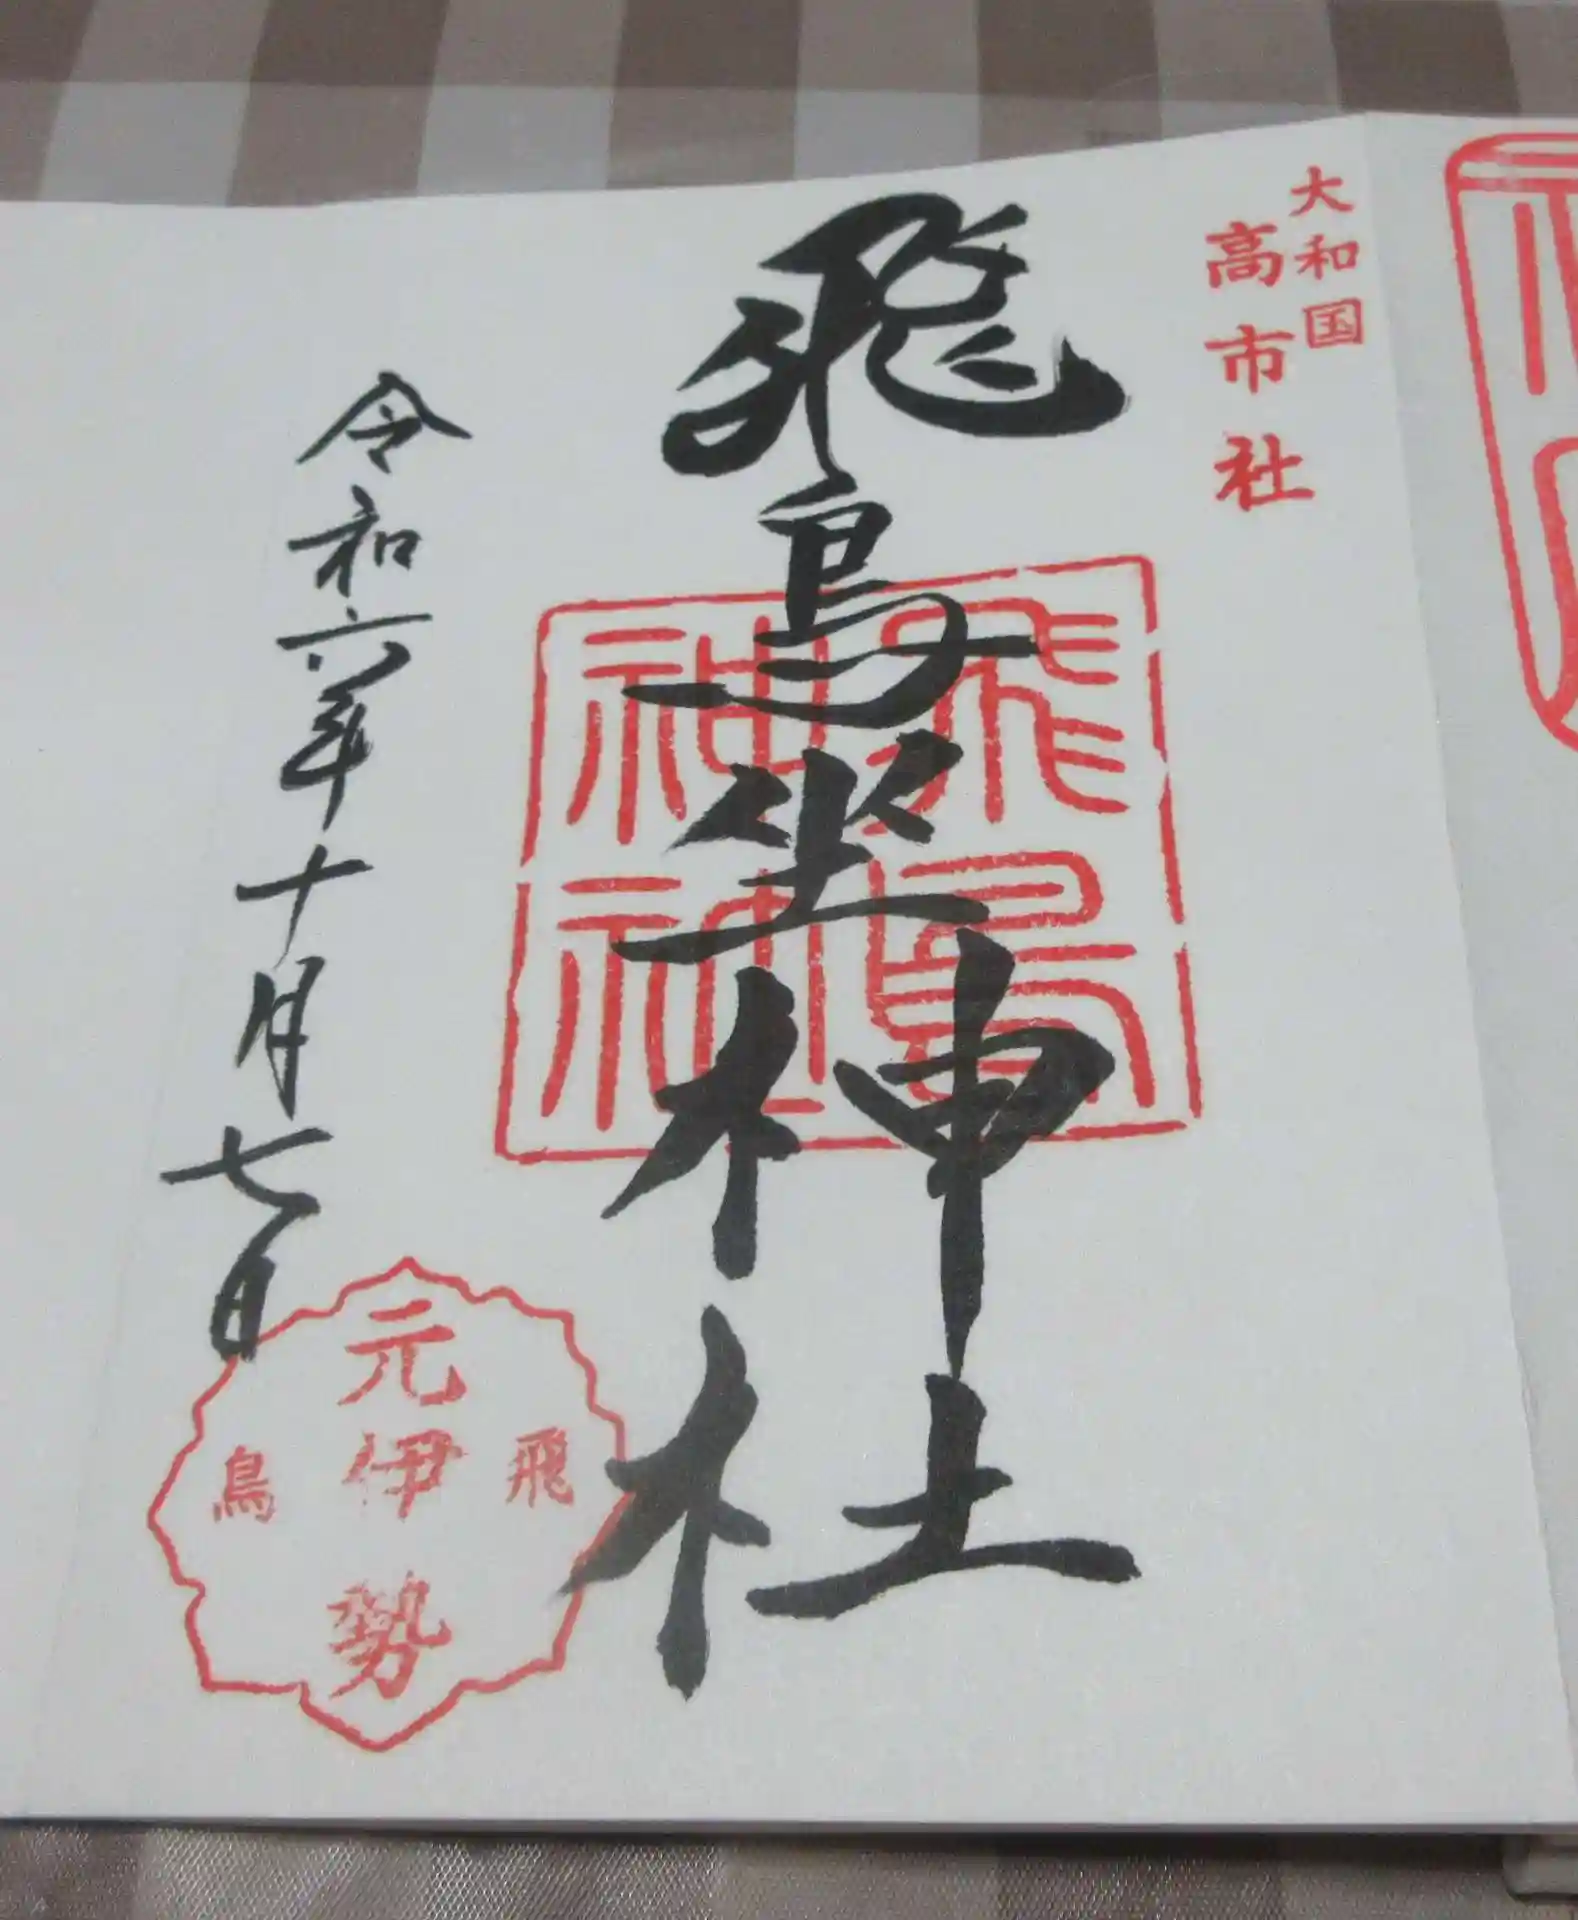 大和国
高市社
飛鳥坐神社
飛鳥
神社
令和六年十月七日
元伊勢
飛鳥